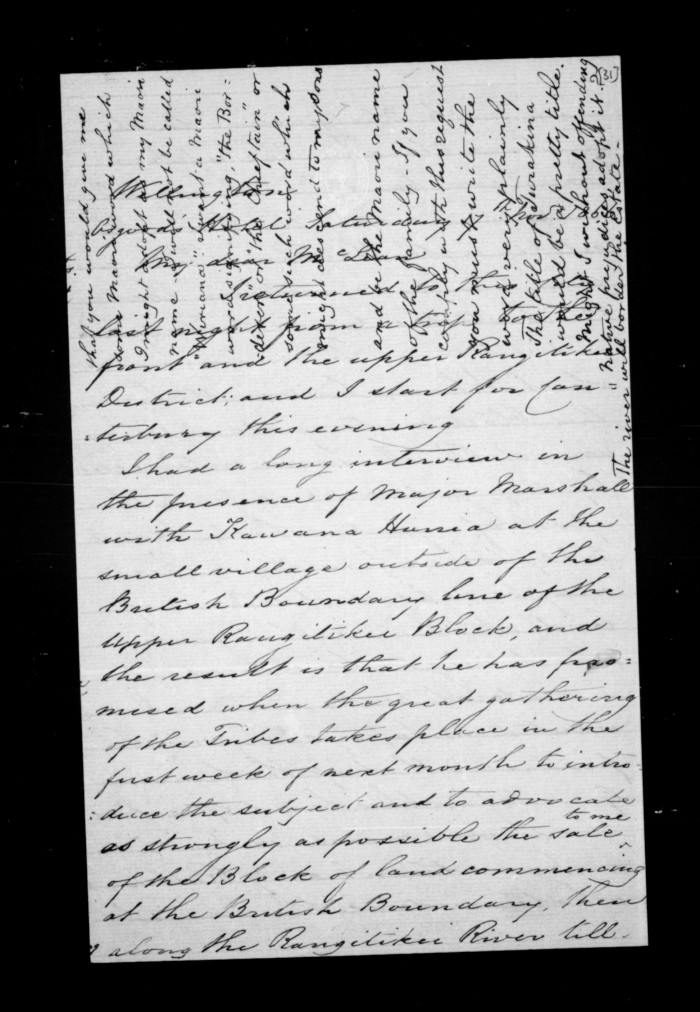 Wellington
Osgood's Hotel Saturday Nov
My dear McLean
I returned to the
last night from a trip to the
front and the upper Rangitikei
District; and I start for Can
-terbury this evening
I had a long interview in
the presence of Major Marshall
with Kawana Hunia at the
small village outside of the
British Boundary line of the
upper Rangitikei Block, and
the result is that he has pro=
mised when the great gathering
of the Tribes takes place in the
first week of next month to intro
:duce the subject and to advocate
as strongly as possible the sale to me
of the Block of land commencing
at the British Boundary, then
along the Rangitikei River till
(31)
that you would give me
some Maori word which
I might adopt as my Maori
name - I will not be called
"Wiriana". I want a Maori
word signifying, "the Bor:
derer" or "the Chieftain" or
some such word which
might descend to my sons
and be the Maori name
of the family - If you
comply with this request
you must write the
word very plainly
The title of Turakina
would be a pretty title.
Might I without offending
native prejudices adopt it?
The river will border the Estate -